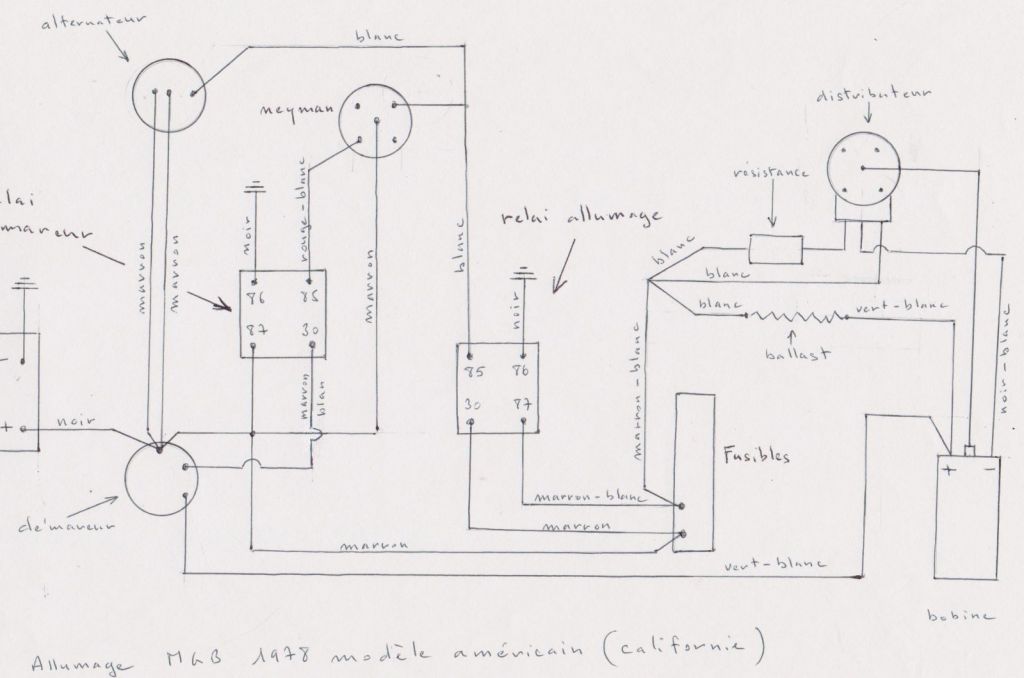 alternateur
blanc
neyman
distributeur
résistance
relai allumage
noir
rouge-blanc
marron
marron
marron
blanc
noir
blanc
blanc
blanc
vert-blanc
ballast
noir-blanc
86 85
87 30
marron
blan
85 86
30 87
marron-blanc
- 
+ noir
Fusibles
+ -
démareur
marron-blanc
marron
marron
vert-blanc
bobine
Allumage MGB 1978 modèle américain (californie)